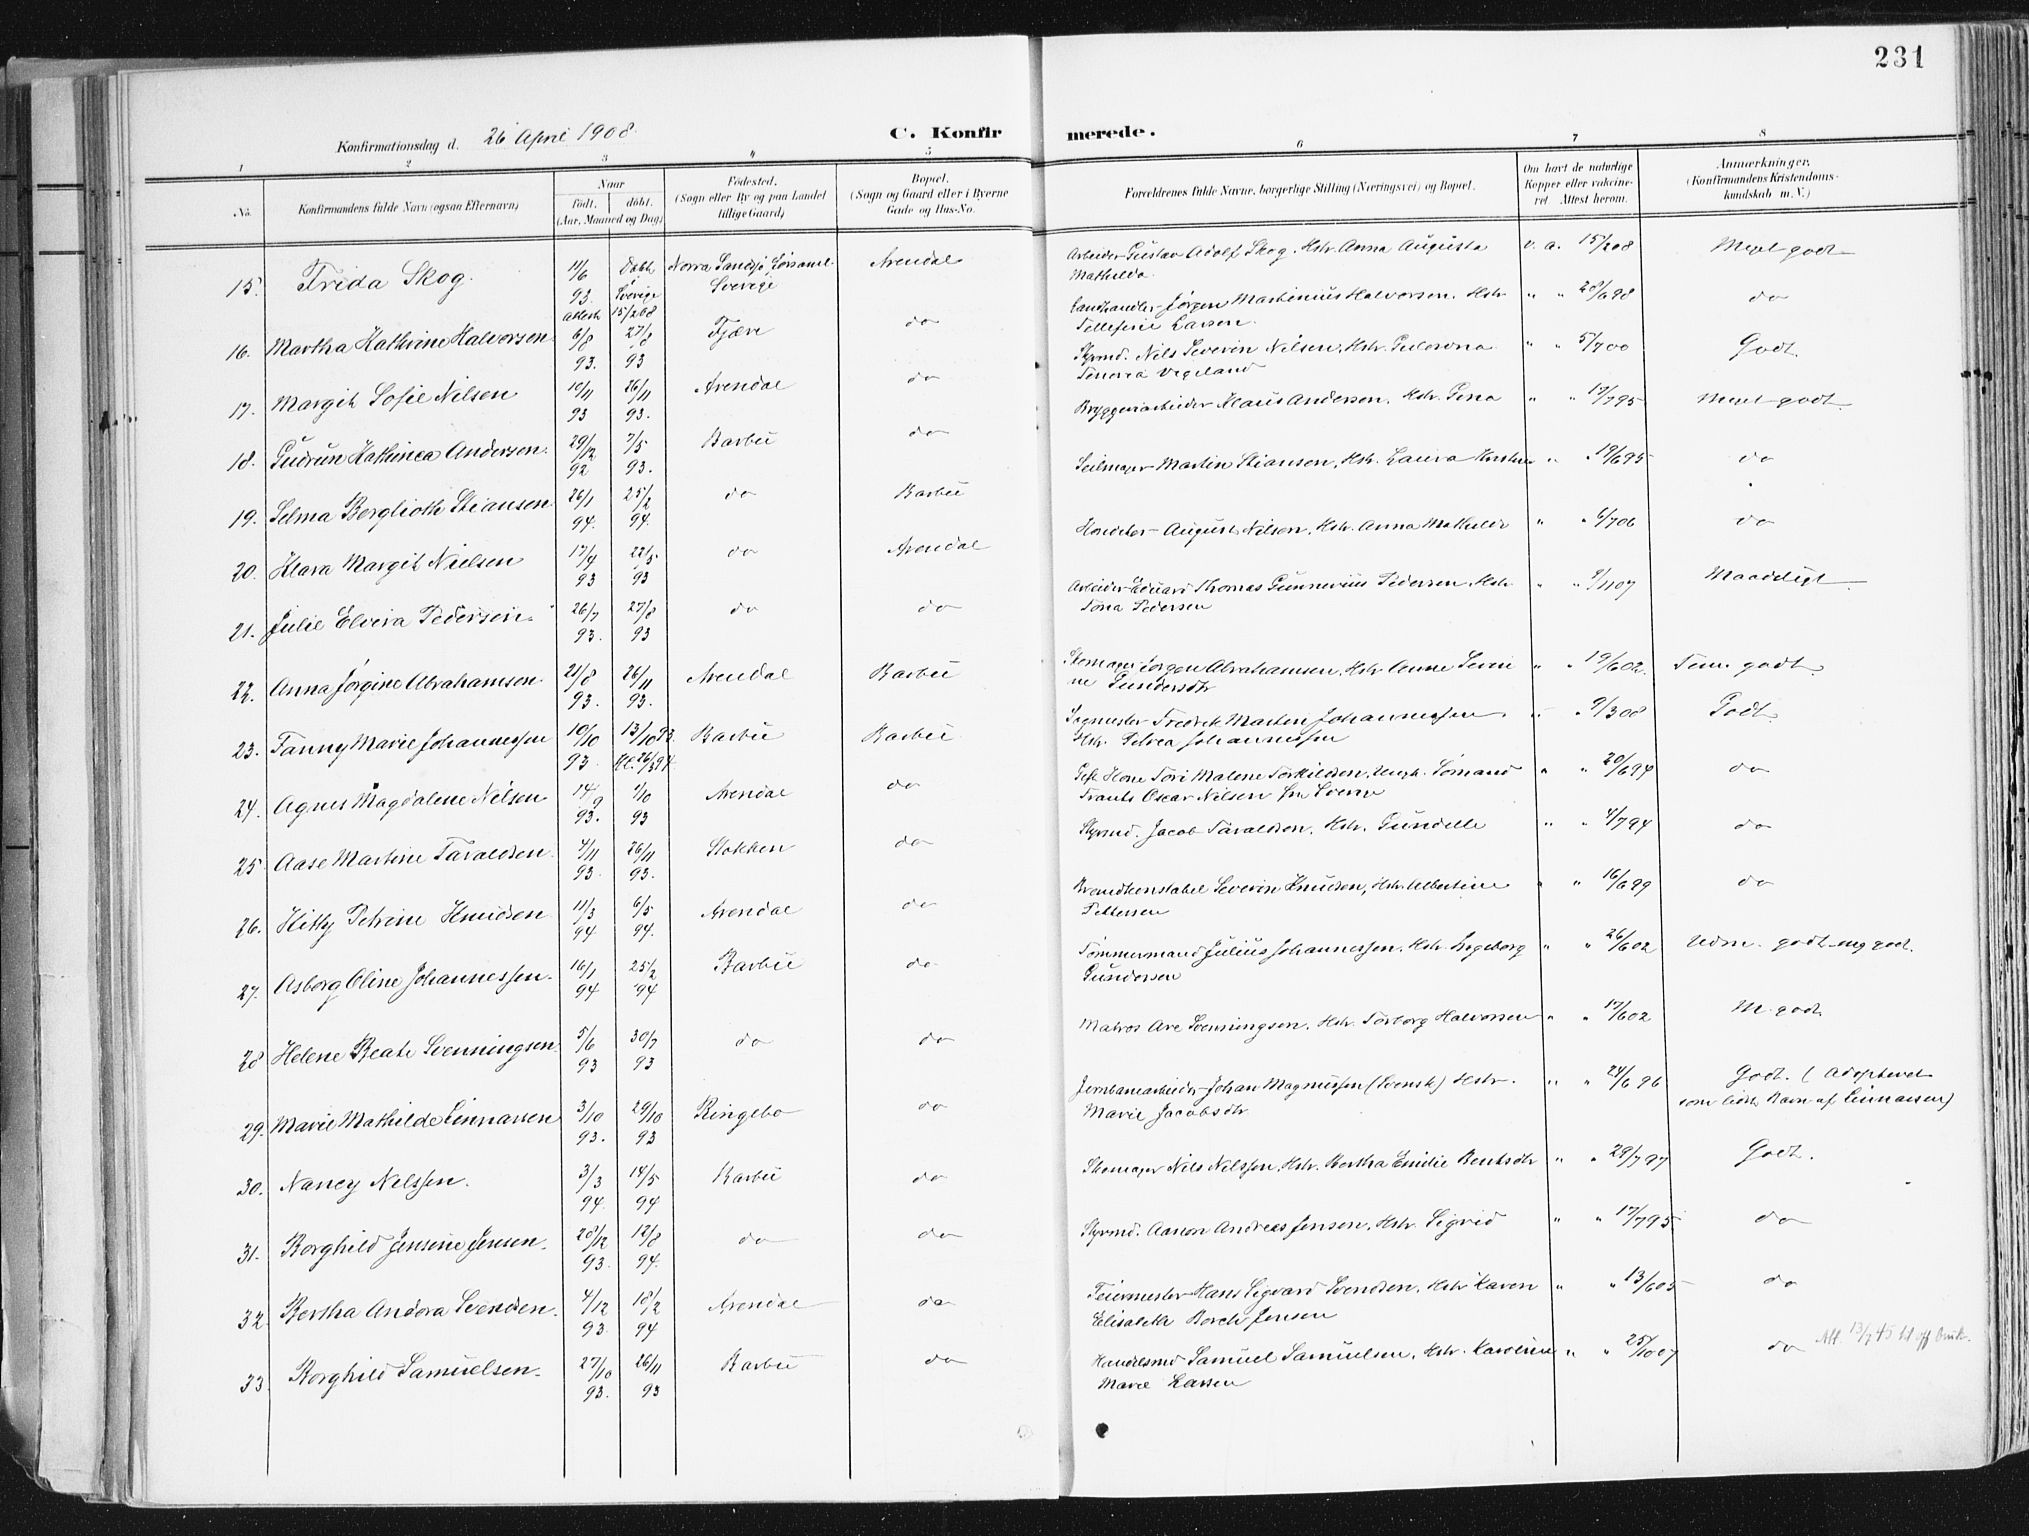 231
Konfirmationsdag d. 26 April 1908. C. Konfirmerede.
1 2 3 4 5 6 7 8
No. Konfirmandens fulde Navn (ogsaa Efternavn) Naar født. døbt. (Aar, Maaned og Dag) Fødested. (Sogn eller By og paa Landet tillige Gaard) Bopæl. (Sogn og Gaard eller i Byerne Gade og Hus-No. Forældrenes fulde Navne, borgerlige Stilling (Næringsvei) og Bopæl. Om havt de naturlige Kopper eller vakcineret. Attest herom. Anmærkninger. (Konfirmandens Kristendomskundskab m. V.)
15. Frida Skog. 11/6 93. Døbt Sverige attest 15/2 08 Norra Sandsjö Sverige Arendal Arbeider Gustav Adolf Skog. Hstr. Anna Augusta Mathilda v. a. 15/2 08 Meget godt
16. Martha Kathrine Halvorsen 6/8 93. 27/8 93 Fjære do Landhandler Jørgen Martinius Halvorsen. Hstr Tellefine Larsen. " " 28/6 98 do
17. Margit Sofie Nilsen 10/11 93 26/11 93. Arendal do Styrmd. Nils Severin Nilsen, Hstr. Vegeland " " 5/7 00 Godt.
18. Gudrun Kathinca Andersen. 29/12 92 7/5 93. Barbu do Bryggeriarbeider Klaus Andersen, Hstr. Gina " " 17/7 95 Meget godt.
19. Selma Berglioth Stiansen 26/1 94. 25/2 94. do Barbu Seilmager Martin Stiansen, Hstr. Laura Kirstine " " 19/6 95 do
20. Klara Margit Nielsen 17/4 93 22/5 93 do Arendal Konditor August Nilsen, Hstr. Anna Mathilde " " 6/7 06 do
21. Julie Elvira Pedersen. 26/7 93. 27/8 93 do do Arbeider Eduard Thomas Gunnerius Pedersen, Hstr. Tona Pedersen " " 9/11 07 Maadeligt
22. Anna Jørgine Abrahamsen 21/8 93. 26/11 93. Arendal Barbu Skomager Jørgen Abrahamsen, Hstr Anne Severine Gundersdtr " " 19/6 02. Tem. godt.
23. Fanny Marie Johannessen 10/10 93. 13/10 93. Kl. 26/3 94. Barbu Barbu Fredrik Martin Johannessen. Hstr. Petrea Johannessen " " 9/3 08 Godt.
24. Agnes Magdalene Nilsen 14/9 93. 1/10 93 Arendal do Gift Kone Tori Malene Torkildsen, Sømand Frants Oscar Nilsen fra Sverige " " 20/6 94 do
25. Aase Martine Taraldsen. 4/11 93. 26/11 93. Stokken do Styrmd. Jacob Taraldsen, Hstr. Gundelle " " 4/7 94 do
26. Kitty Petrine Knudsen 11/3 94 6/5 94. Arendal do Brandkonstabel Severin Knudsen, Hstr. Albertine Pettersen " " 16/6 99 do
27. Asborg Oline Johannessen. 16/1 94 25/2 94 Barbu do Tømmermand Julius Johannessen, Hstr. Ingeborg Gundersen " " 26/6 02 Udm. godt - meg. godt.
28 Helene Beate Svenningsen 5/6 93 30/7 93 do do Matros Are Svenningsen, Hstr. Torborg Halvorsen " " 17/6 02 M. godt.
29. Marie Mathilde Linnarsen 3/10 93. 29/10 93 Ringebo do Jernbanearbeider Johan Magnussen (Svensk) Hstr. Marie Jacobsdtr " " 24/6 96 Godt. (Adopteret som Barn af Linnarsen)
30. Nancy Nilssen. 3/3 94. 14/5 94 Barbu do Skomager Nils Nilssen, Hstr. Bertha Emilie Bentsdtr " " 29/7 97 Godt.
31. Borghild Jensine Jensen. 28/12 93. 12/8 94. do do Styrmd. Aanon Andreas Jensen, Hstr. Sigrid " " 17/7 95 do
32. Bertha Andora Svendsen. 4/12 93. 18/2 94 Arendal do Feiermester Hans Sigvard Svendsen, Hstr Karen Elisabeth Borch Jensen " " 13/6 05 do
33. Borghild Samuelsen. 27/10 93. 26/11 93 Barbu do Handelsmd Samuel Samuelsen, Hstr. Karoline Marie Larsen " " 25/10 07 do Att. 13/7 45 til off. bruk.